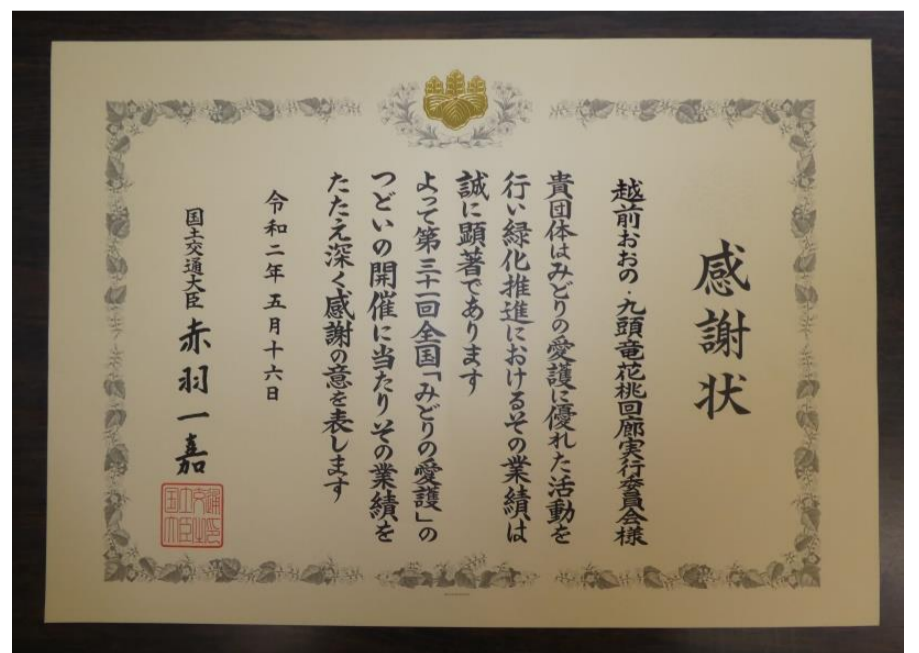 感謝状
越前おおの・九頭竜花桃回廊実行委員会様
貴団体はみどりの愛護に優れた活動を
行い緑化推進におけるその業績は
誠に顕著であります
よって第三十一回全国「みどりの愛護」の
つどいの開催に当たりその業績を
たたえ深く感謝の意を表します
令和二年五月十六日
国土交通大臣 赤羽一嘉